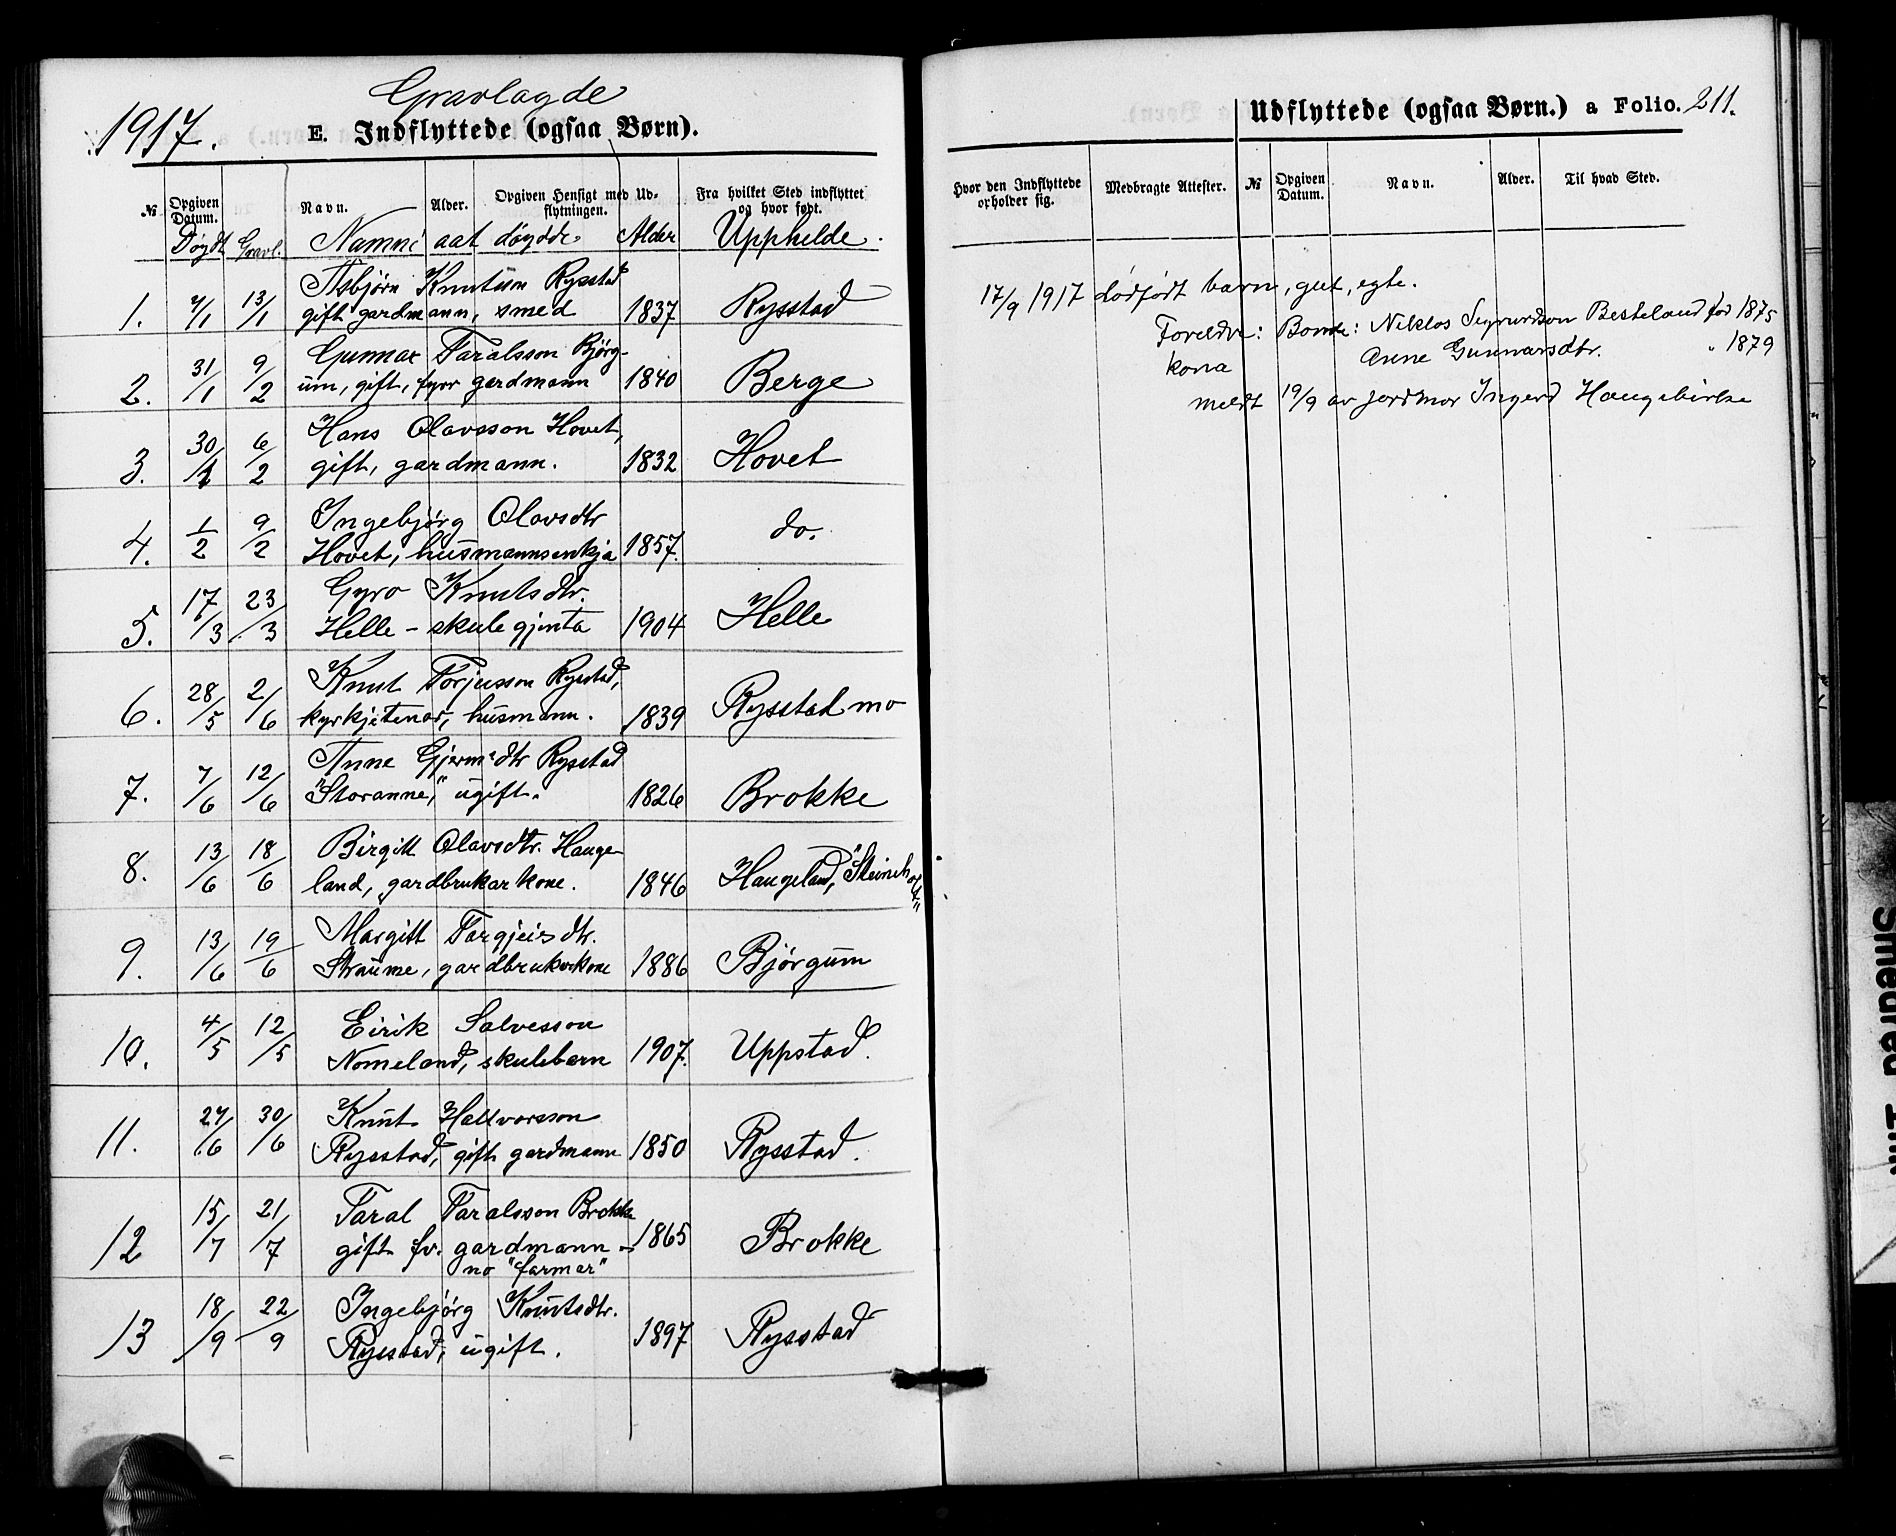 Gravlagde
1917.
E. Indflyttede (ogsaa Børn).
№ Opgiven Datum. Navn. Alder. Opgiven Hensigt med Ud-flytningen. Fra hvilket Sted indflyttet og hvor født.
Døydt Gravl. Namni aat døydde Alder Upphelde.
Asbjørn Knutson Rysstad
1. 7/1 13/1 gift gardmann, smed 1837 Rysstad
Gunnar Taralsson Bjørg-
2. 31/1 9/2 um, gift, fyrr gardmann 1840 Berge
Hans Olavsson Hovet,
3. 30/1 6/2 gift, gardmann. 1832 Hovet
Ingebjørg Olavsdtr
4. 1/2 9/2 Hovet, husmannsenkja 1857. do.
Gyro Knutsdtr.
5. 17/3 23/3 Helle - skulegjenta 1904 Helle
Knut Torjusson Rysstad,
6. 28/5 2/6 kyrkjetenar, husmann. 1839 Rysstad mo
Anne Gjermdtr Rysstad
7. 7/6 12/6 "Storanne," ugift. 1826 Brokke
Birgitt Olavsdtr. Hauge-
8. 13/6 18/6 land, gardbrukarkone. 1846 Haugeland, "Steineholt"
Margitt Targjeisdtr.
9. 13/6 19/6 Straume, gardbrukarkone 1886 Bjørgum
Eirik Salvesson
10. 4/5 12/5 Nomeland, skulebarn 1907. Uppstad.
Knut Hallvorsson
11. 24/6 30/6 Rysstad, gift gardmann 1850 Rysstad.
Taral Taralsson Brokke
12 15/7 21/7 gift fv. gardmann - 1865 Brokke
no "farmer"
Ingebjørg Knutsdtr.
13 18/9 22/9 Rysstad, ugift. 1897 Rysstad
Udflyttede (ogsaa Børn.) a Folio. 211.
Hvor den Indflyttede opholder sig. Medbragte Attester. № Opgiven Datum. Navn. Alder. Til hvad Sted.
17/9 1917 dødfødt barn, gut, egte.
Foreldre: Bonde: Niklos Sigurdson Besteland fød 1875
kona Anne Gunnarsdtr. " 1879
meldt 19/9 av jordmor Ingerd Haugebirke